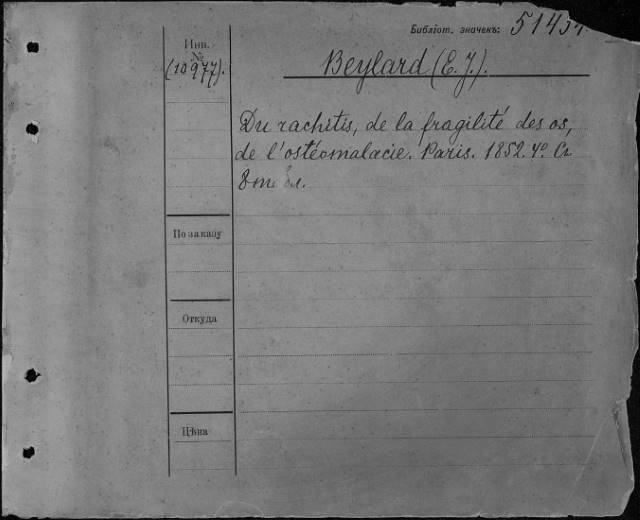 Библіот. значекъ: 5145
Инв.
№
(10977).
Beylard (E. J.).
Du rachitis, de la fragilité des os,
de l'ostéomalacie. Paris. 1852. 4°. Съ
По заказу
Откуда
Цѣна